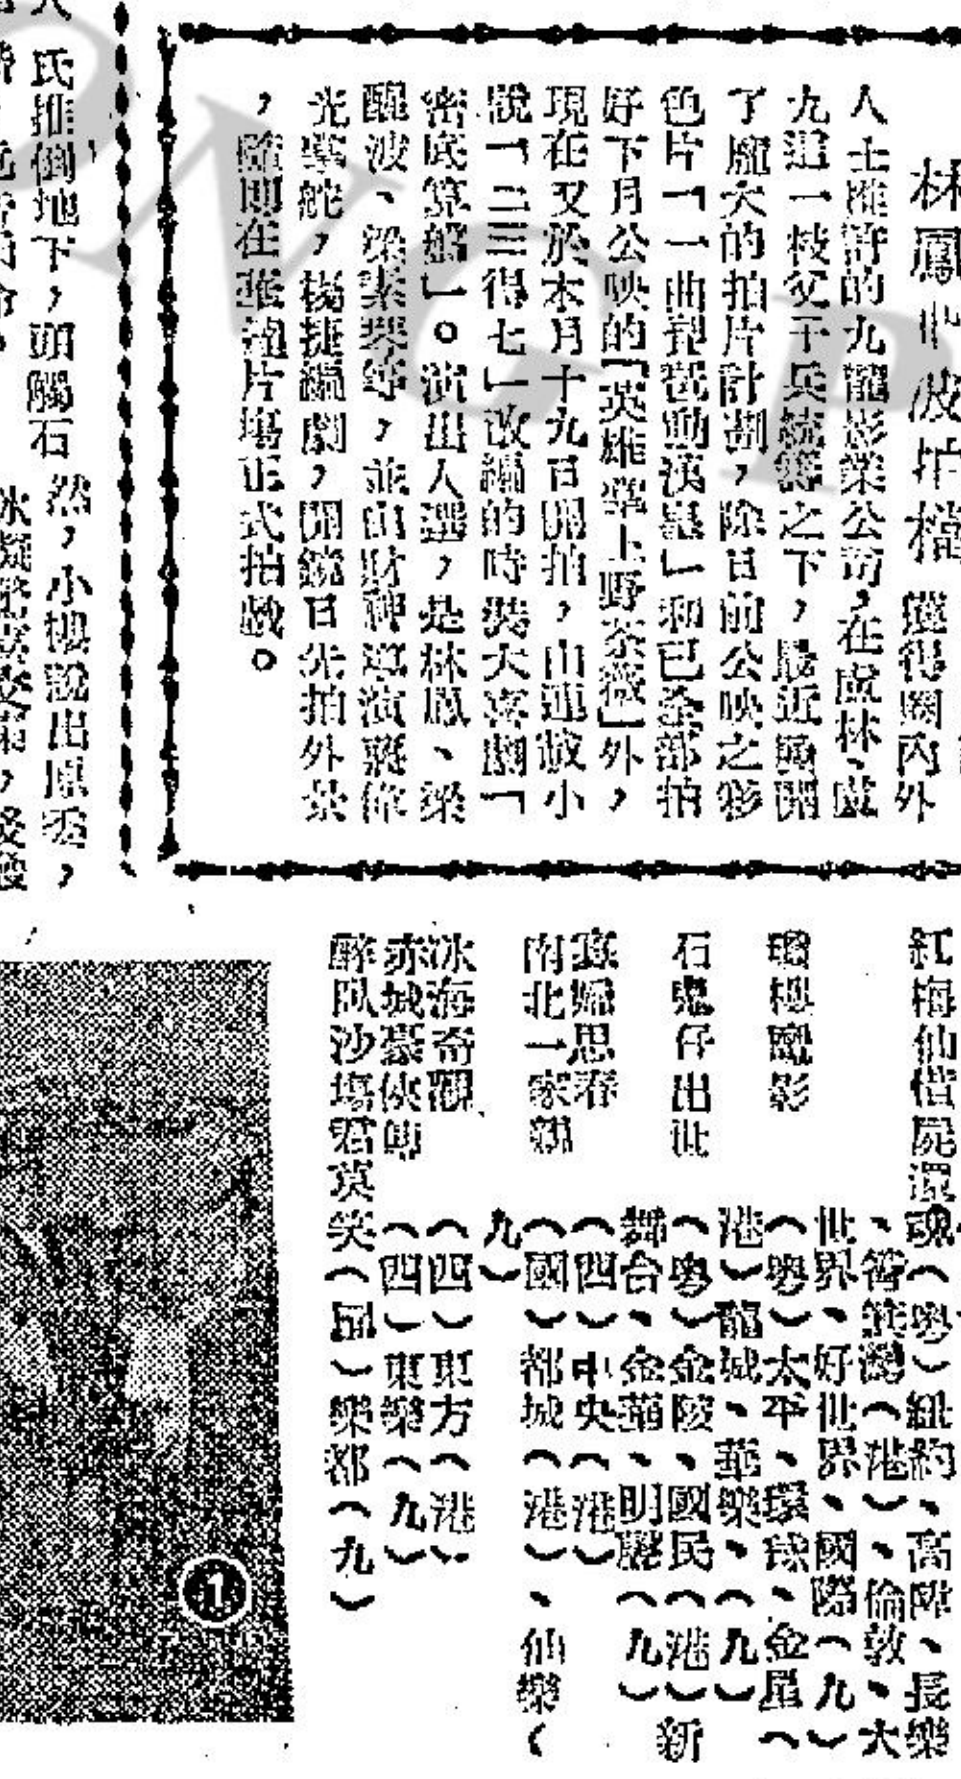 林鳳 波拍檔 獲得圈內外
人士推許的九龍影業公司,在盧林、盧
九逼一枝父子兵統籌之下,最近展開
了龐大的拍片計劃,除日前公映之彩
色片「一曲琵琶動漢皇」和已全部拍
好下月公映的「英雄掌上野荼薇」外,
現在又於本月十九日開拍,由連載小
說「二三得七」改編的時裝大喜劇「
密底算盤」。演出人選,是林鳳、梁
醒波、梁素琴等,並由財神導演蔣偉
光掌舵,楊捷編劇,開鏡日先拍外景
,隨則在 片塲正式拍戲。
氏推倒地下,頭觸石
然,小樓說出原委,
紅梅仙借屍還魂(粵)紐約、高陞、長樂
、筲箕灣(港)、倫敦、大
世界、好世界、國際(九)
璇樓魔影
(粵)太平、環球、金星(
港)龍城、華樂、(九)
石鬼仔出世
(粵)金陵、國民(港)新
舞台、金華、明麗(九)
寡婦思春
(四)中央(港)
南北一家親
(國)都城(港)、仙樂(
九)
冰海奇觀
(四)東方(港)
赤城豪俠
(四)東樂(九)
醉臥沙塲君莫笑(國)樂都(九)
1